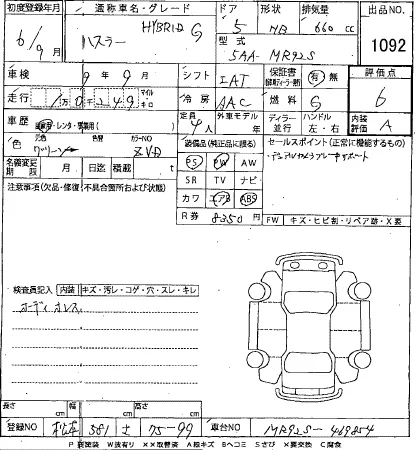 初度登録年月 通称車名・グレード ドア 形状 排気量 出品NO.
6/9月 ハスラー HYBRID G 5 HB 660 cc
型式 5AA-MR92S 1092
車検 9年9月 シフト IAT 保証書 有 無 評価点
走行 マイル キロ 冷房 AAC 燃料 G 6
車歴 自家用・レンタ・ 定員 4人 外車モデル 年 ディーラー 並行 ハンドル 左・右 内装評価 A
色 元色 グリーン 色替 カラーNO ZVD 装備品(純正品に限る) セールスポイント(正常に機能するもの)
名義変更期限 月 日迄 積載 t PS PW AW デュアルカメラブレーキサポート
注意事項(欠品・修復・不具合箇所及び状態) SR TV ナビ
カワ エアB ABS
R券 8350円 FW キズ・ヒビ割・リペア跡・X要
検査員記入 内装 キズ・汚レ・コゲ・穴・スレ・キレ
オーディオレス
長さ cm 幅 cm 高さ cm
登録NO 松本 581 さ 75-99 車台NO MR92S-469854
P要塗装 W波有り XX取替済 A線キズ Bヘコミ Sさび X要交換 C腐食